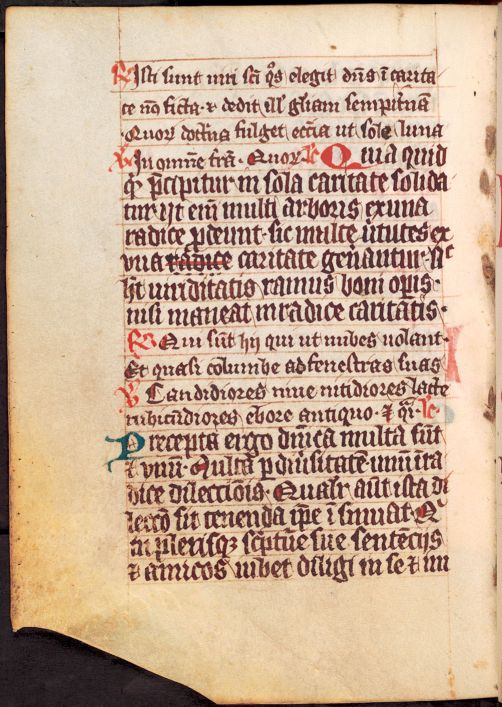 R Isti sunt uiri sci qs elegit dns i carita
te no ficta ⁊ dedit ill gliam sempitnā
Quor doctna fulget ecctia ut sole luna
V In omne trā. Quor Lc Quia quid
qd pcipitur in sola caritate solida
tur ut eni multi arboris ex una
radice pdeunt. sic multe uirtutes ex
una radice caritate genantur. nec
ht uiriditatis ramus boni opis.
nisi maneat in radice caritatis.
R Qui sūt hii qui ut nubes uolant.
Et quasi columbe ad fenestras suas
V Candidiores niue nitidiores lacte
rubicūdiores ebore antiquo. ⁊ qi. Lc
Precepta ergo dnica multa sūt
⁊ unū. Multa p diuisitatē unū i ra
dice dilectiois. Qualr aūt ista di
lectio sit tenenda ipe i sinuat. Q
in plerisqz scptue sue sentencijs
⁊ amicos iubet diligi in se ⁊ ini